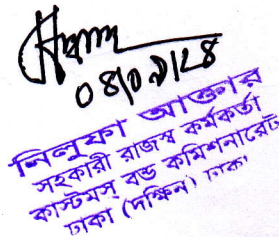 ০৪/০৯/২৪
নিলুফা আক্তার
সহকারী রাজস্ব কর্মকর্তা
কাস্টমস্ বন্ড কমিশনারেট
ঢাকা (দক্ষিন) ঢাকা